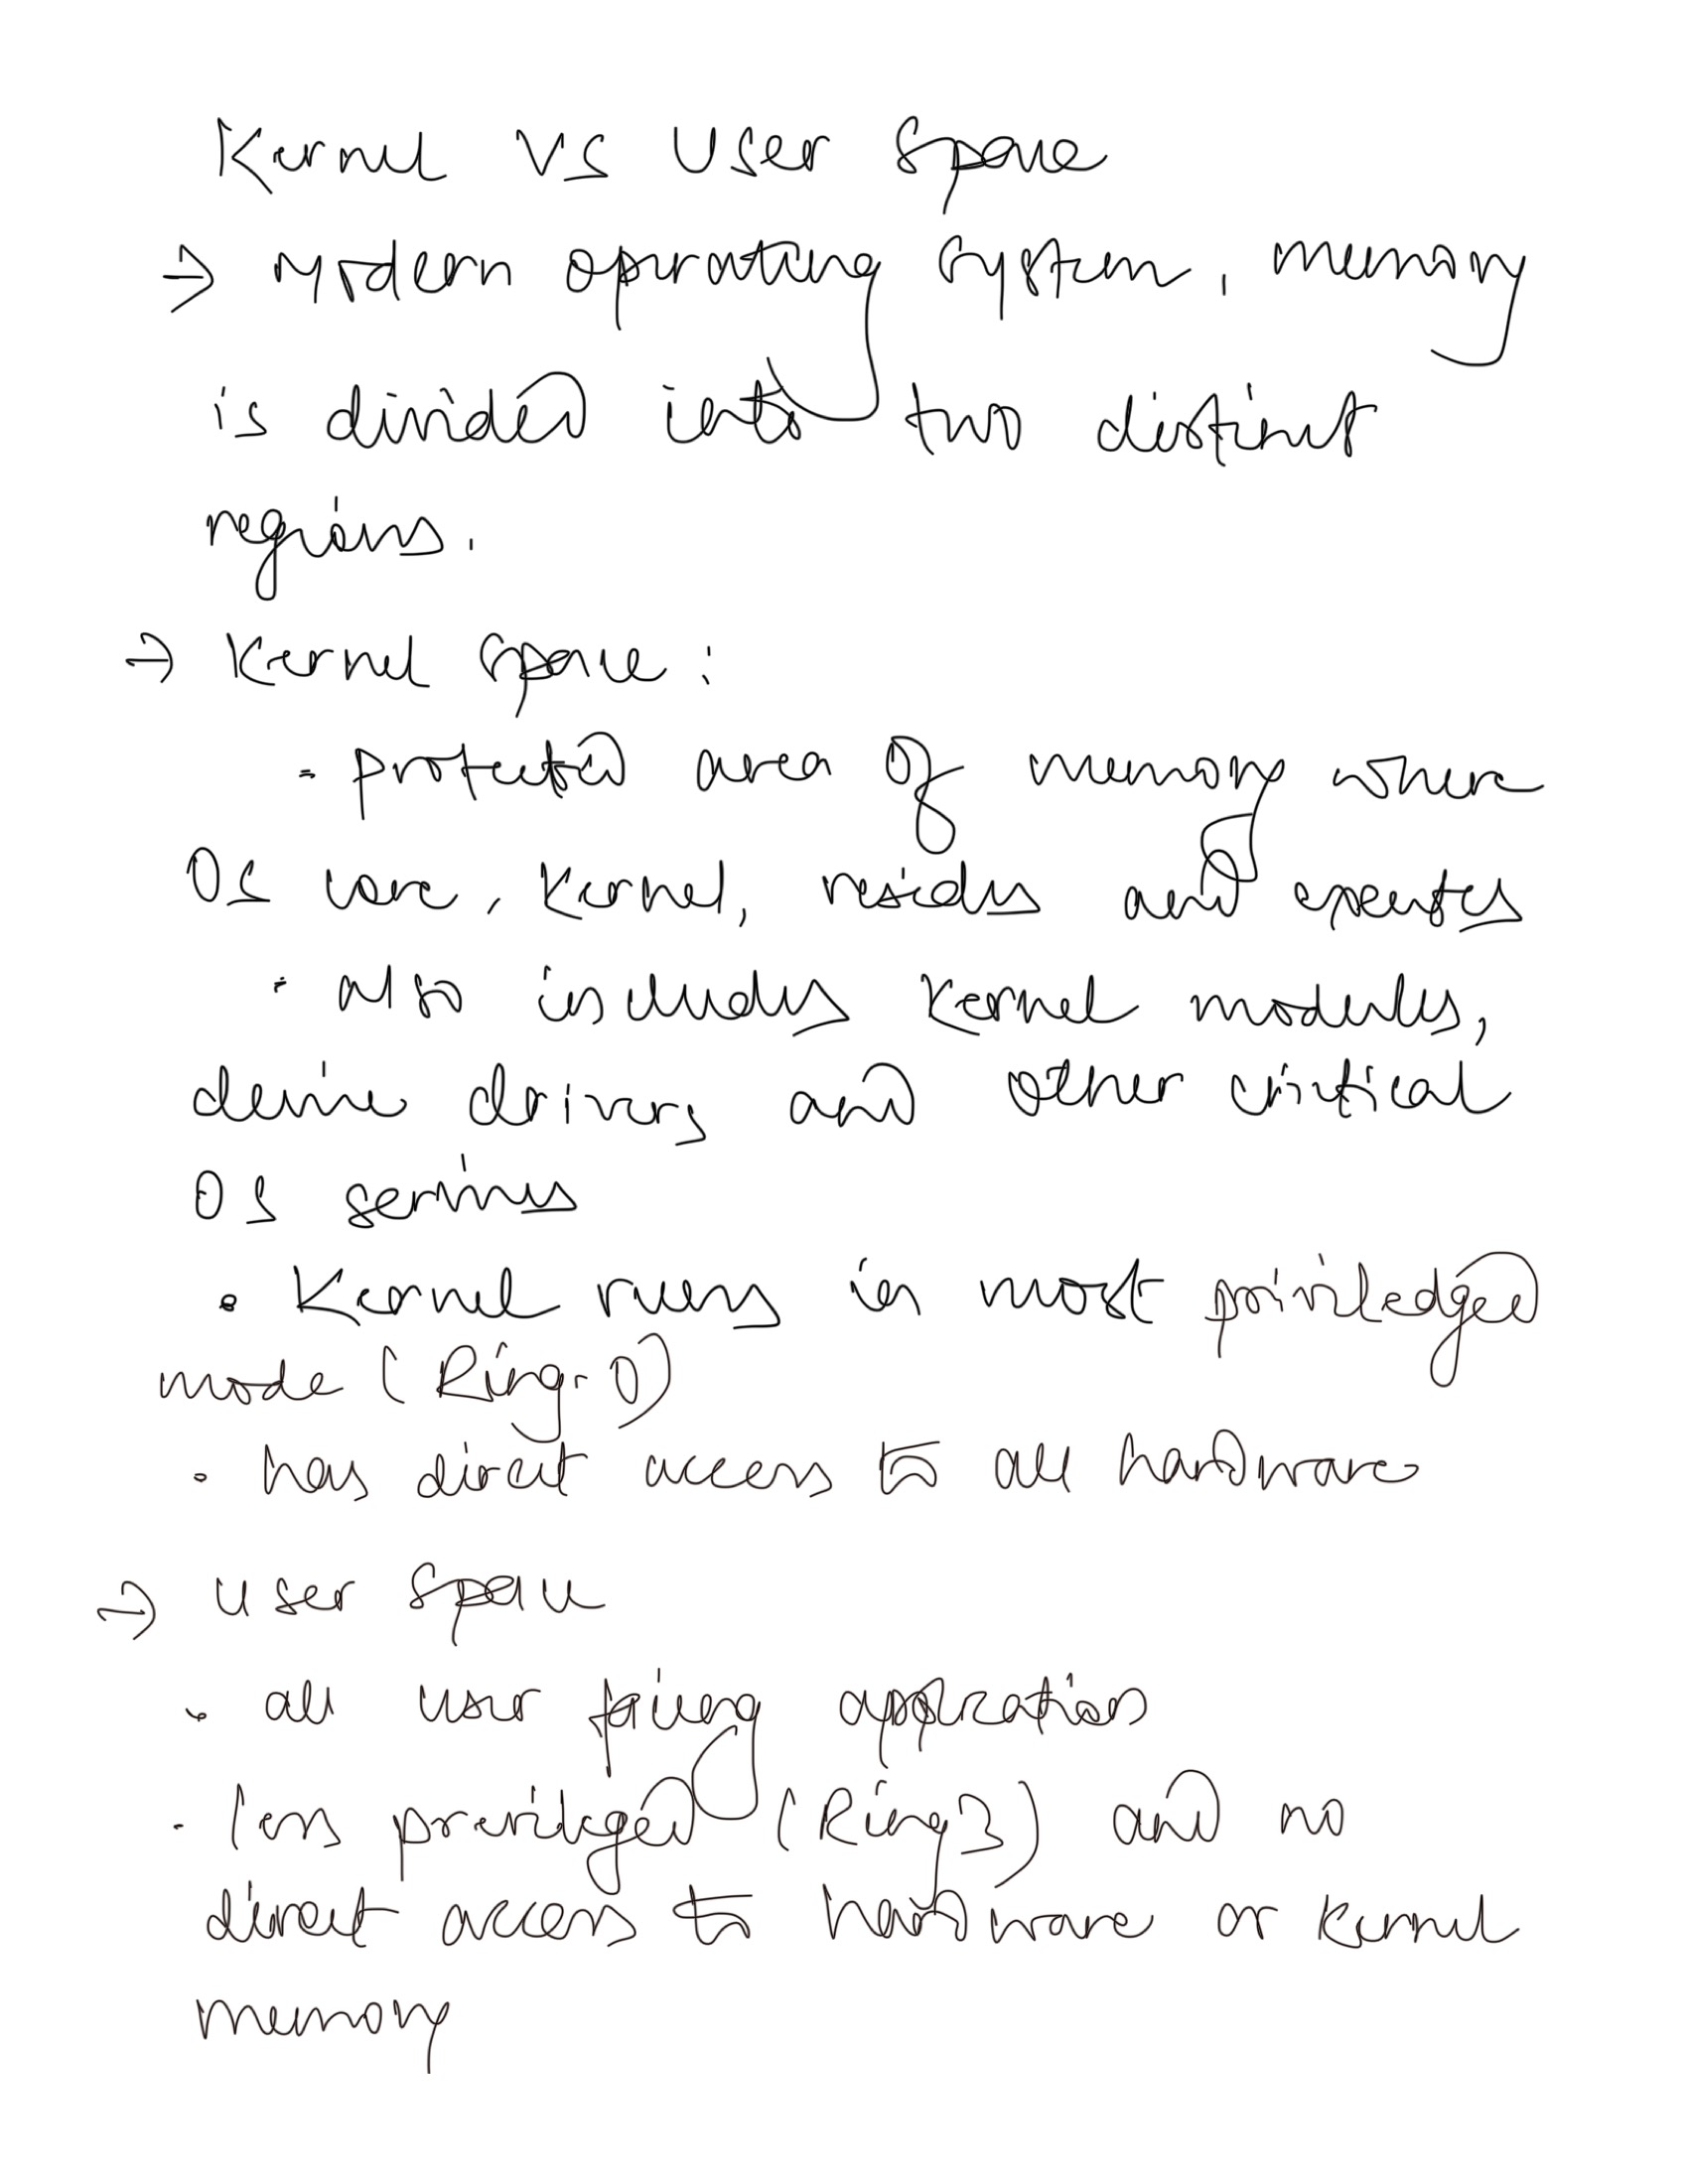 Kernel vs User Space
→ Modern operating system, memory
is divided into two distinct
regions.
→ Kernel Space :
- protected area of memory where
OS core, Kernel, resides and executes
• also includes Kernel modules,
device drivers and other critical
OS services
• Kernel runs in most priviledged
mode (Ring-0)
• has direct access to all hardware
→ User Space
• all user facing application
• less privileged (Ring 3) and no
direct access to hardware or kernel
memory